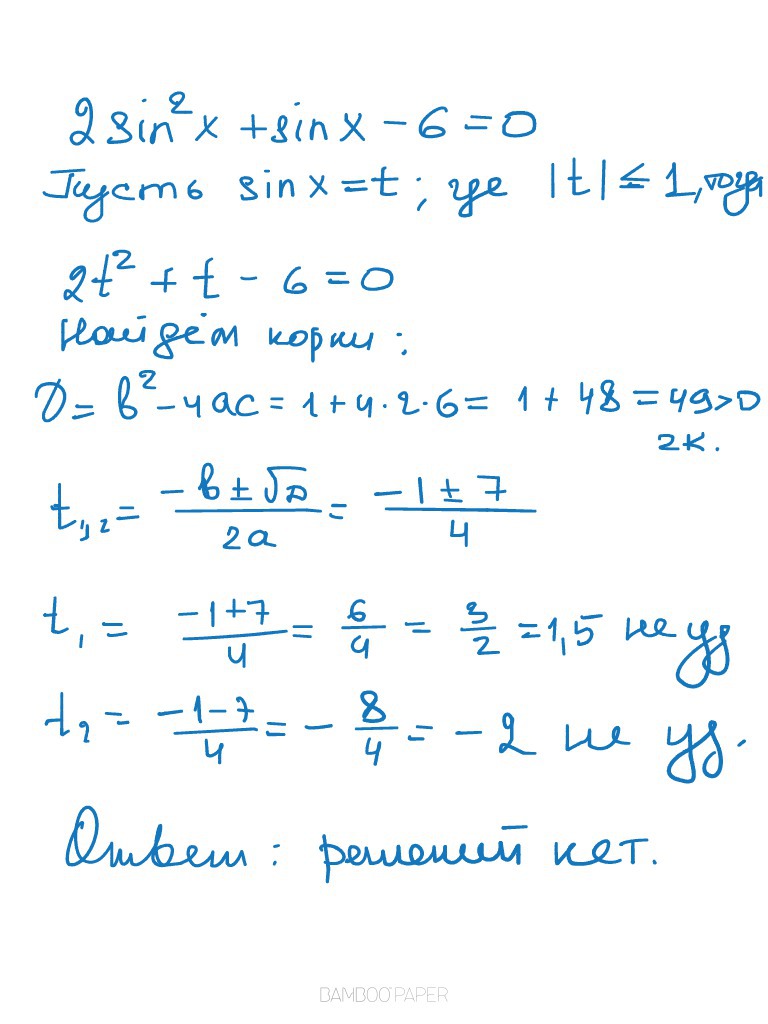 2 sin²x + sin x − 6 = 0
Пусть sin x = t ; где |t| ≤ 1, тогда
2t² + t − 6 = 0
Найдём корни :
D = b² − 4ac = 1 + 4·2·6 = 1 + 48 = 49 > 0
2к.
t₁,₂ = (−b ± √D)/2a = (−1 ± 7)/4
t₁ = (−1+7)/4 = 6/4 = 3/2 = 1,5 не уд
t₂ = (−1−7)/4 = −8/4 = −2 не уд.
Ответ : решений нет.
BAMBOO PAPER